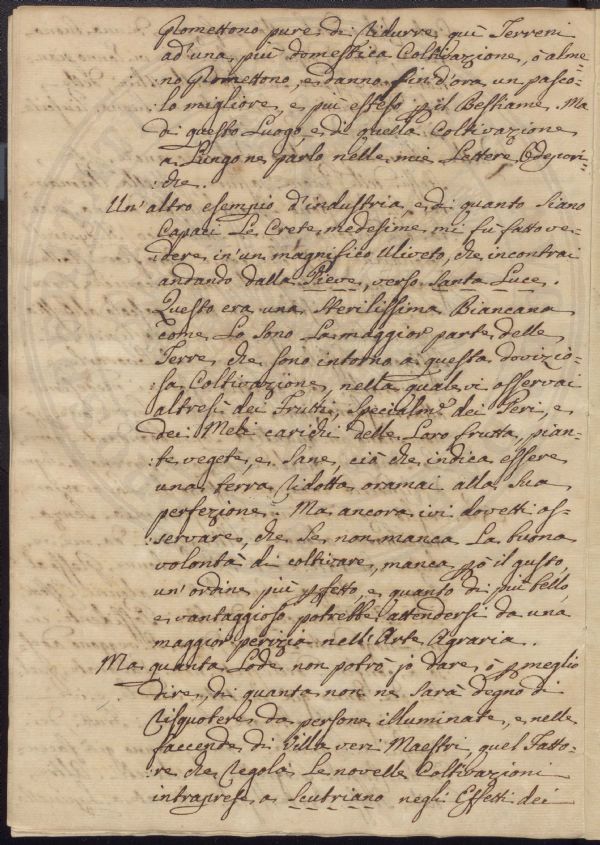 Promettono pure di ridurre quei Terreni
ad'una più domestica Coltivazione, ò alme=
no Promettono, e danno fin d'ora un pasco=
:lo migliore, e più esteso p il Bestiame. Ma
di questo Luogo, e di quella Coltivazione
a Lungo ne parlo nelle mie Lettere Odepori=
:che.
Un'altro esempio d'industria, e di quanto siano
Capaci Le Crete medesime mi fù fatto ve=
dere in'un magnifico Uliveto, che incontrai
andando dalla Pieve, verso Santa Luce.
Questo era una sterilissima Biancana
come Lo sono La maggior parte delle
Terre che sono intorno a questa dovizio=
:sa Coltivazione, nella quale vi osservai
altresì dei Frutti, specialmᵉ dei Peri, e
dei Meli carichi delle Loro frutta, pian=
:te vegete, e sane, ciò che indica essere
una terra ridotta oramai alla sua
perfezione. Ma ancora ivi dovetti os=
:servare, che se non manca La buona
volontà di coltivare, manca pò il gusto,
un'ordine più pfetto, e quanto di più bello,
e vantaggioso potrebbe attendersi da una
maggior perizia nell'Arte Agraria.
Ma quanta Lode non potrò jo dare, ò p meglio
dire, di quanta non ne sarà degno di
risquotere da persone illuminate, e nelle
faccende di Villa veri Maestri, quel Fatto=
:re che regola Le novelle Coltivazioni
intraprese a Scutriano negli Effetti dei